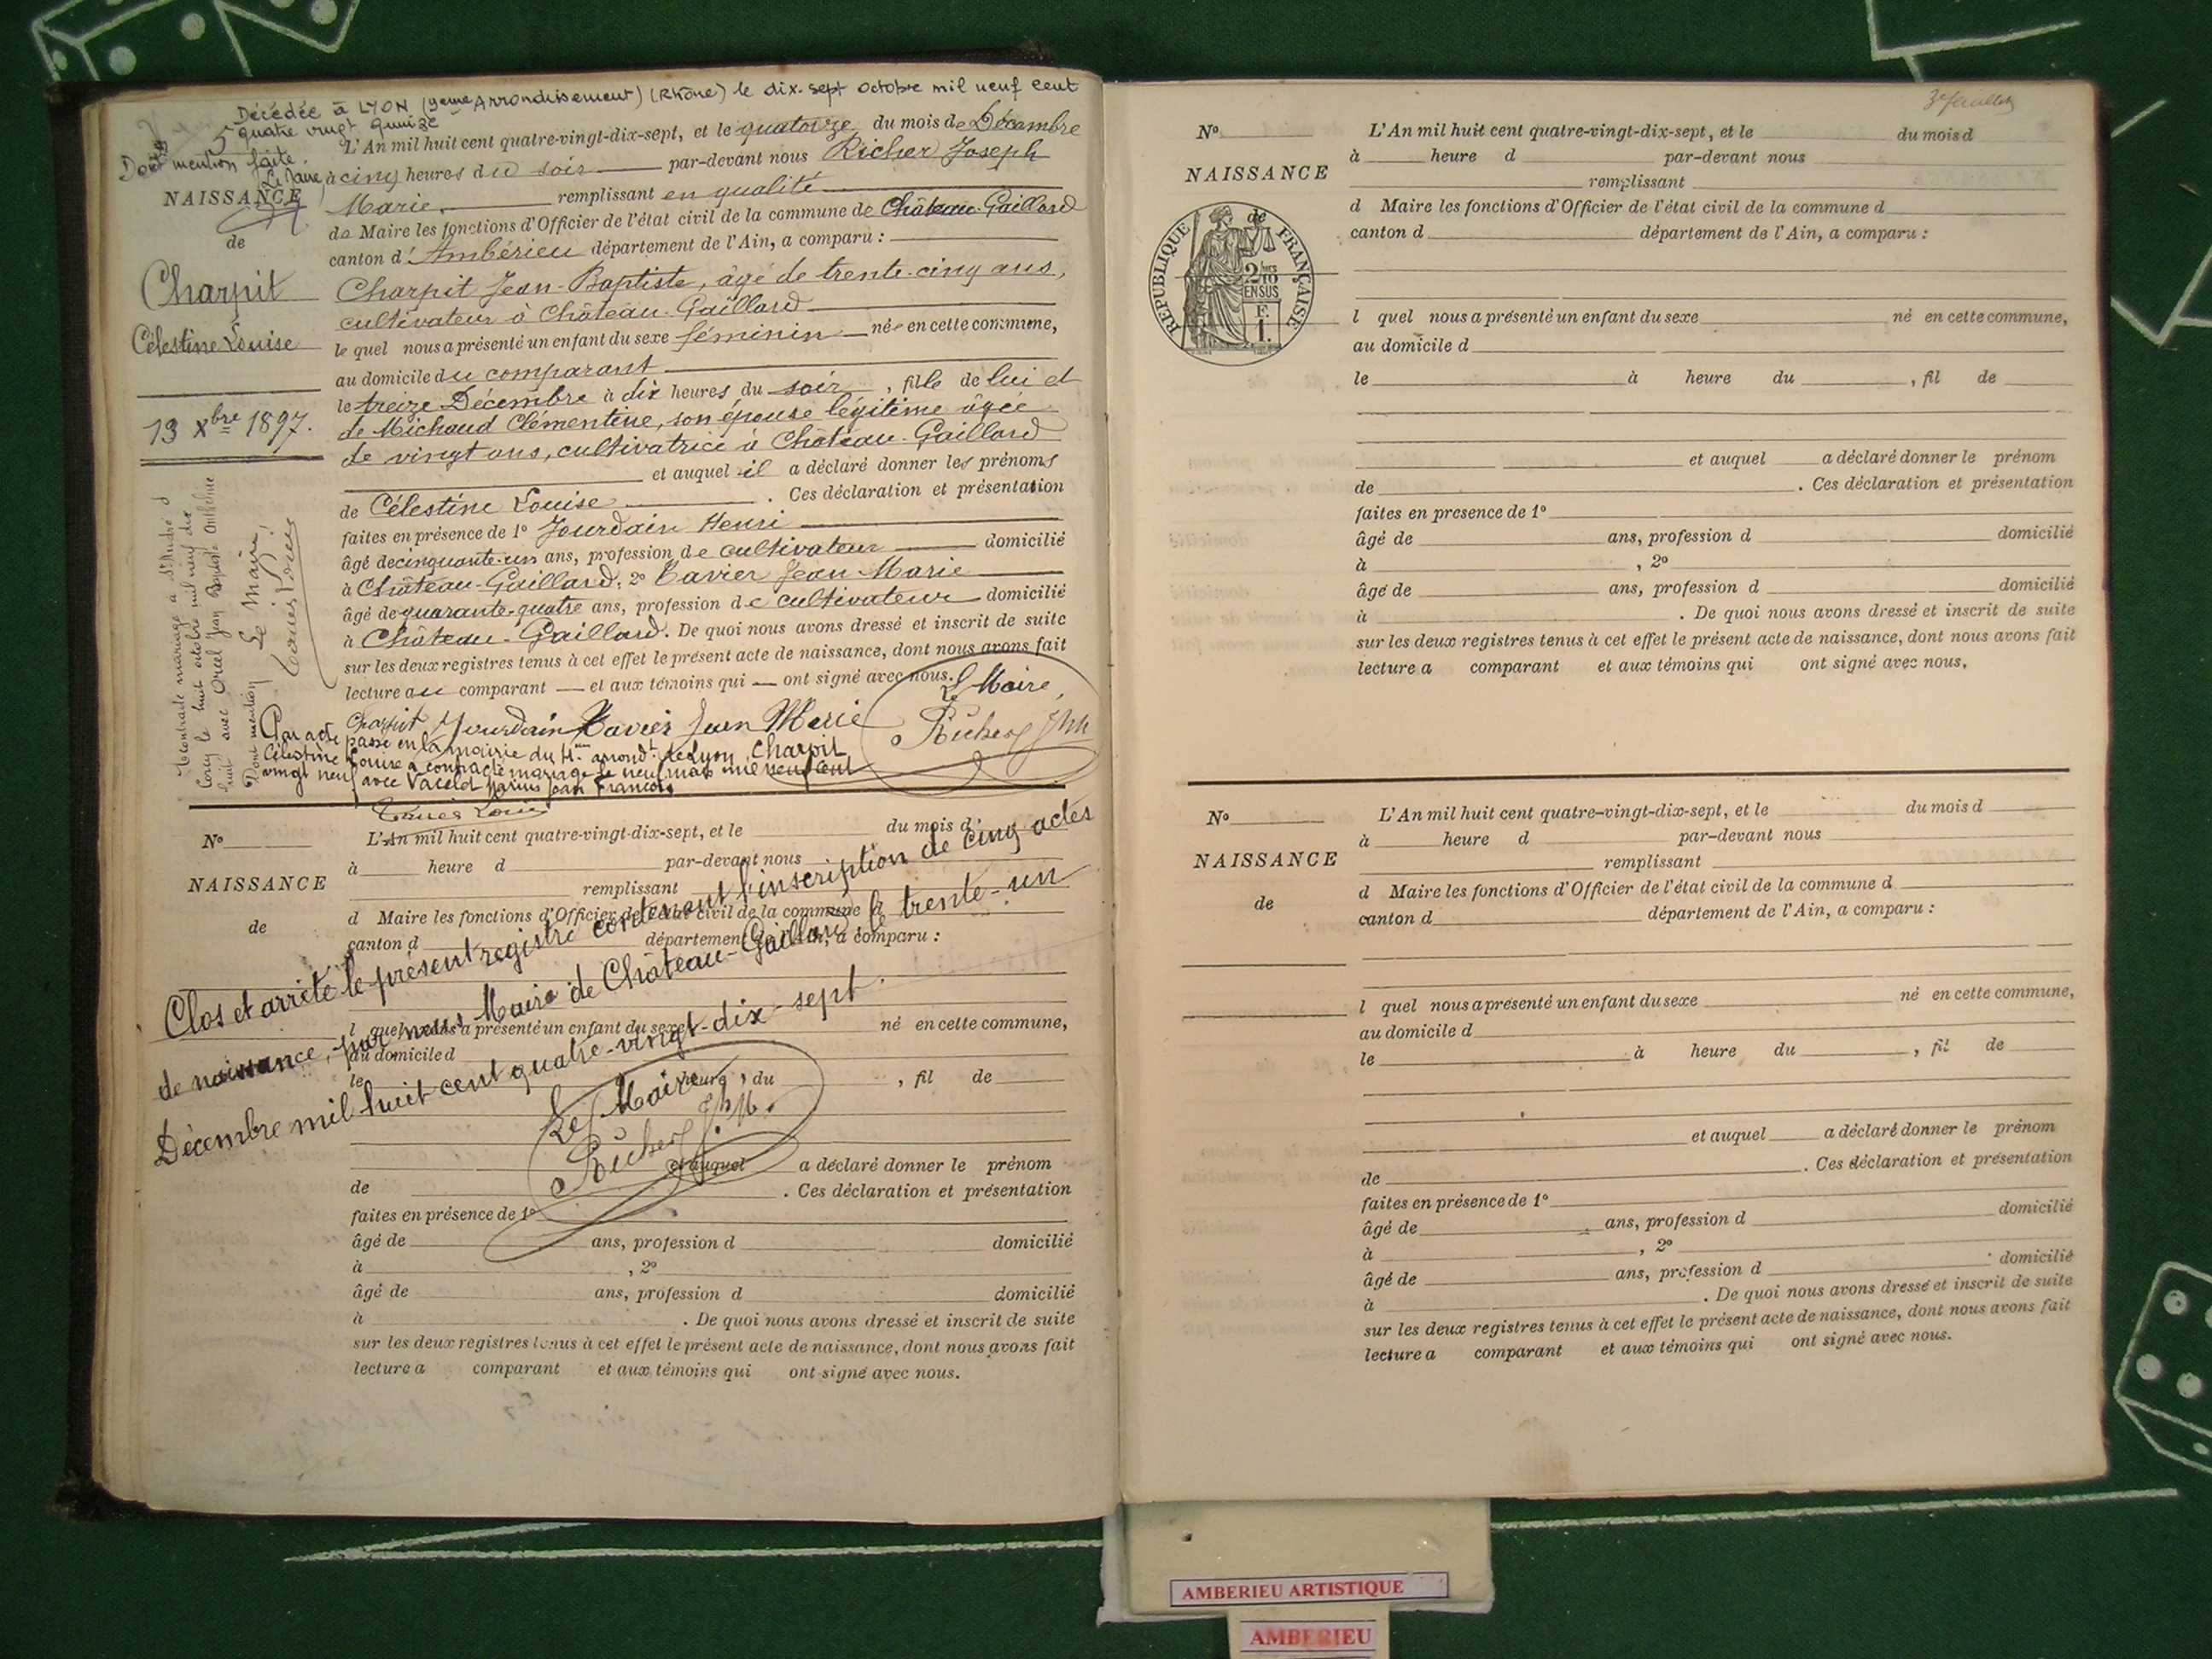 Décédée à LYON (9eme Arrondissement) (Rhône) le dix-sept octobre mil neuf cent
quatre vingt quinze
Dont mention faite.
Le Maire
5
NAISSANCE
de
Charpit
Célestine Louise
13 Xbre 1897.
L'An mil huit cent quatre-vingt-dix-sept, et le quatorze du mois de Décembre
à cinq heures du soir par-devant nous Richer Joseph
Marie, remplissant en qualité
de Maire les fonctions d'Officier de l'état civil de la commune de Château-Gaillard
canton d'Ambérieu département de l'Ain, a comparu :
Charpit Jean-Baptiste, âgé de trente-cinq ans,
cultivateur à Château-Gaillard
le quel nous a présenté un enfant du sexe féminin née en cette commune,
au domicile du comparant
le treize Décembre à dix heures du soir, fille de lui et
de Michaud Clémentine, son épouse légitime âgée
de vingt ans, cultivatrice à Château-Gaillard
et auquel il a déclaré donner les prénoms
de Célestine Louise. Ces déclaration et présentation
faites en présence de 1º Jourdain Henri
âgé de cinquante-un ans, profession de cultivateur domicilié
à Château-Gaillard, 2º Tavier Jean-Marie
âgé de quarante-quatre ans, profession de cultivateur domicilié
à Château-Gaillard. De quoi nous avons dressé et inscrit de suite
sur les deux registres tenus à cet effet le présent acte de naissance, dont nous avons fait
lecture au comparant et aux témoins qui ont signé avec nous.
Le Maire,
Charpit Jourdain Tavier Jean Marie Richer Jph M
A contracté mariage à St André d
Corcy le huit octobre mil neuf dix
huit avec Oriel Jean Baptiste Anthelme
Dont mention Le Maire,
Par acte passé en la mairie du 4me arrondt de Lyon, Charpit
Célestine Louise a contracté mariage le neuf mars mil neuf cent
vingt neuf avec Vacelet Marius Jean François
Nº
NAISSANCE
de
L'An mil huit cent quatre-vingt-dix-sept, et le du mois d
à heure d par-devant nous
remplissant
d Maire les fonctions d'Officier de l'état civil de la commune d
canton d département de l'Ain, a comparu :
l quel nous a présenté un enfant du sexe né en cette commune,
au domicile d
le heure du , fil de
et auquel a déclaré donner le prénom
de . Ces déclaration et présentation
faites en présence de 1º
âgé de ans, profession d domicilié
à , 2º
âgé de ans, profession d domicilié
à . De quoi nous avons dressé et inscrit de suite
sur les deux registres tenus à cet effet le présent acte de naissance, dont nous avons fait
lecture a comparant et aux témoins qui ont signé avec nous.
Clos et arrêté le présent registre contenant l'inscription de cinq actes
de naissance, par nous Maire de Château-Gaillard, le trente-un
Décembre mil huit cent quatre-vingt-dix-sept.
Le Maire,
Richer Jph M.
3e feuillet
Nº
NAISSANCE
RÉPUBLIQUE FRANÇAISE
2/10 EN SUS
F. 1.
de
L'An mil huit cent quatre-vingt-dix-sept, et le du mois d
à heure d par-devant nous
remplissant
d Maire les fonctions d'Officier de l'état civil de la commune d
canton d département de l'Ain, a comparu :
l quel nous a présenté un enfant du sexe né en cette commune,
au domicile d
le à heure du , fil de
et auquel a déclaré donner le prénom
de . Ces déclaration et présentation
faites en presence de 1º
âgé de ans, profession d domicilié
à , 2º
âgé de ans, profession d domicilié
à . De quoi nous avons dressé et inscrit de suite
sur les deux registres tenus à cet effet le présent acte de naissance, dont nous avons fait
lecture a comparant et aux témoins qui ont signé avec nous.
Nº
NAISSANCE
de
L'An mil huit cent quatre-vingt-dix-sept, et le du mois d
à heure d par-devant nous
remplissant
d Maire les fonctions d'Officier de l'état civil de la commune d
canton d département de l'Ain, a comparu :
l quel nous a présenté un enfant du sexe né en cette commune,
au domicile d
le à heure du , fil de
et auquel a déclaré donner le prénom
de . Ces déclaration et présentation
faites en présence de 1º
âgé de ans, profession d domicilié
à , 2º
âgé de ans, profession d domicilié
à . De quoi nous avons dressé et inscrit de suite
sur les deux registres tenus à cet effet le présent acte de naissance, dont nous avons fait
lecture a comparant et aux témoins qui ont signé avec nous.
AMBERIEU ARTISTIQUE
AMBERIEU